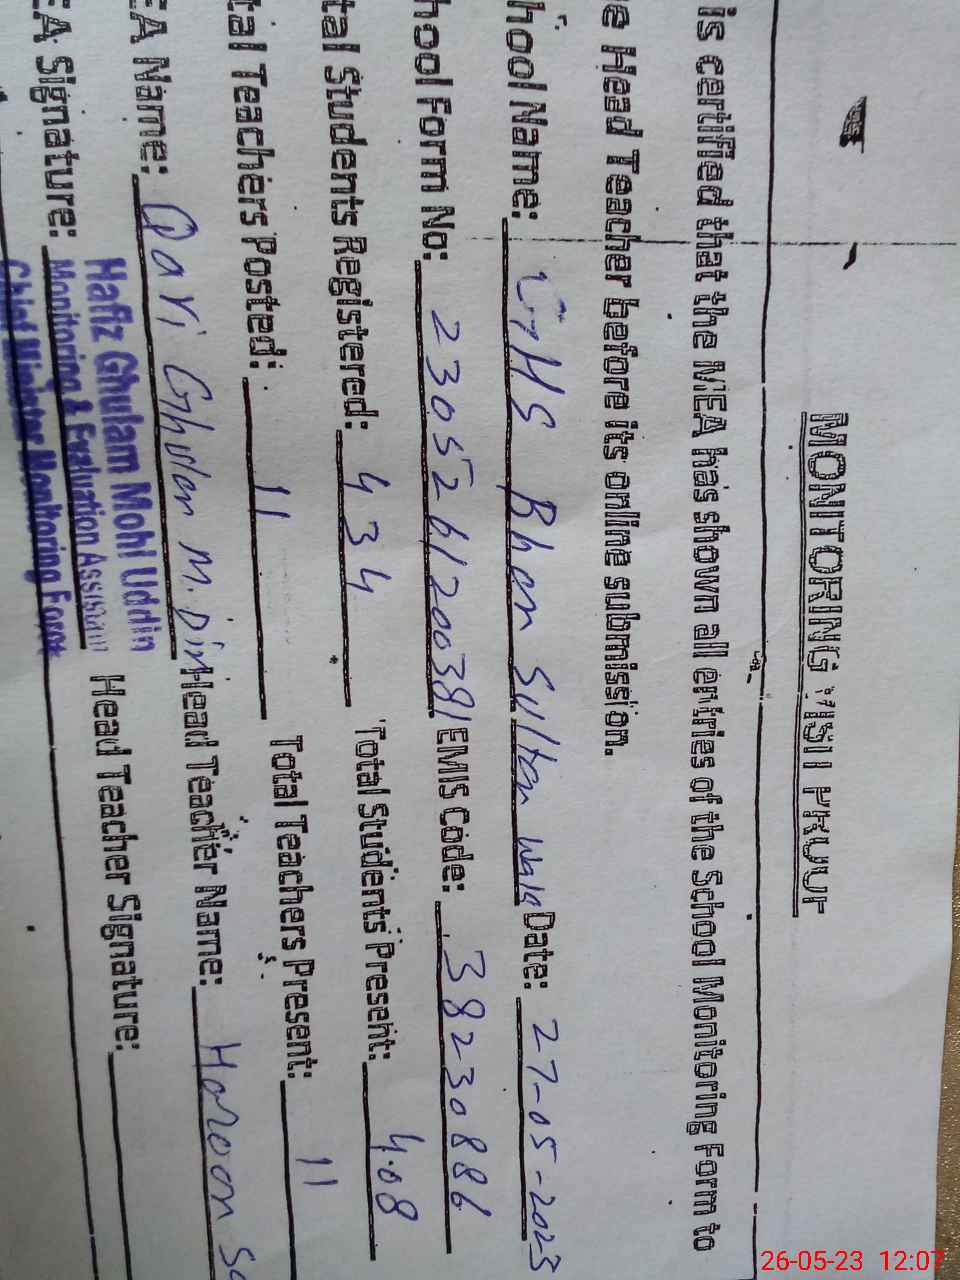 MONITORING VISIT PROOF
is certified that the MEA has shown all entries of the School Monitoring Form to
e Head Teacher before its online submission.
hool Name: GHS Bhan Sultan wala Date: 27-05-2023
hool Form No: 2305261200381 EMIS Code: 38230886
tal Students Registered: 434 Total Students Present: 408
tal Teachers Posted: 11 Total Teachers Present: 11
EA Name: Qari Ghulam M. Din Head Teacher Name: Haroon Sa
EA Signature: Head Teacher Signature:
Hafiz Ghulam Mohi Uddin
Monitoring & Evaluation Assistant
Chief Minister Monitoring Force
26-05-23 12:07